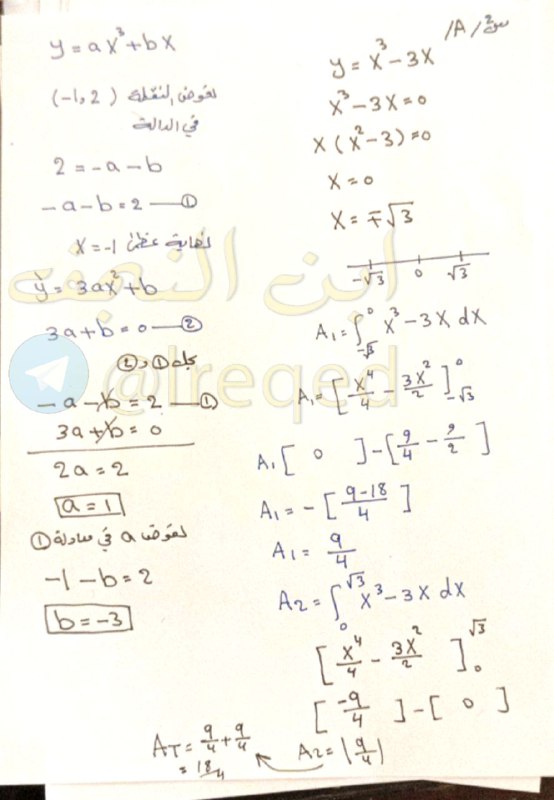 س2 /A/
y = ax³ + bx
نعوض النقطة (-1, 2)
في الدالة
2 = -a - b
-a - b = 2 — ①
نهاية عظمى x = -1
y′ = 3ax² + b
3a + b = 0 — ②
بحل ① و ②
-a - b = 2 — ①
3a + b = 0
2a = 2
a = 1
نعوض a في معادلة ①
-1 - b = 2
b = -3
y = x³ - 3x
x³ - 3x = 0
x(x² - 3) = 0
x = 0
x = ∓√3
-√3 0 √3
A₁ = ∫_{-√3}^{0} x³ - 3x dx
A₁ = [x⁴/4 - 3x²/2]_{-√3}^{0}
A₁ [ 0 ] - [9/4 - 9/2]
A₁ = -[(9-18)/4]
A₁ = 9/4
A₂ = ∫_{0}^{√3} x³ - 3x dx
[x⁴/4 - 3x²/2]_{0}^{√3}
[-9/4] - [ 0 ]
A₂ = |9/4|
A_T = 9/4 + 9/4
= 18/4
ابن النجف
@Ireqed